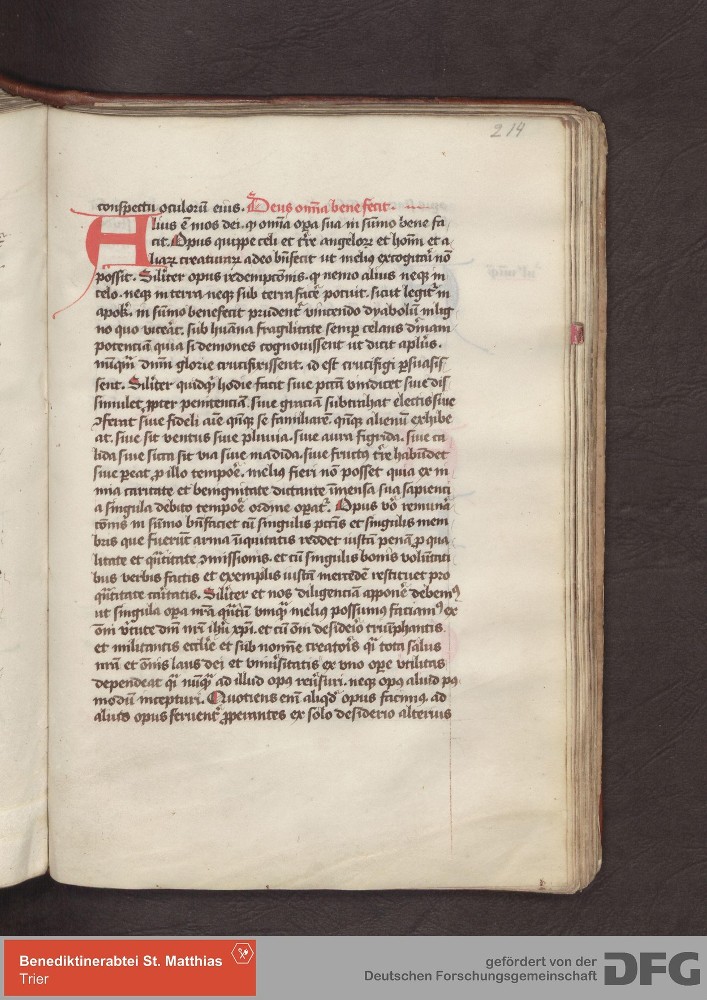 214
conspectu oculorū eius. Deus om̄ia bene fecit.
Alius ē mos dei. qꝫ om̄ia oꝑa sua in sūmo bene fa
cit. Opus quippe celi et t̄re angeloꝝ et hoīm et a
liaꝝ creaturaꝝ adeo bn̄fecit ut meliꝰ excogitari nō
possit. Silīter opus redemptōnis. qꝫ nemo alius neqꝫ in
celo. neqꝫ in terra neqꝫ sub terra facē potuit. sicut legit᷑ in
apok̄. in sūmo benefecit prudent᷑ vincendo dyabolū mlig
no quo viceāt. sub hūana fragilitate semꝑ celans d̄inam
potenciam quia si demones cognouissent ut dicit apl̄us.
nūqm̄ dn̄m glorie crucifixissent. id est crucifigi ꝑsuasis
sent. Silīter quidqꝫ hodie facit siue pctm̄ vindicet siue dis
simulet ꝓpter penitenciam. siue graciam subtrahat electis siue
ꝯferat siue fideli aīe qn̄qꝫ se familiarē. qn̄qꝫ alienū exhibe
at. siue sit ventus siue pluuia. siue aura frigida. siue ca
lida siue sicca sit via siue madida. siue fructꝰ t̄re habūdet
siue ꝑeat ꝓ illo tempoē. meliꝰ fieri nō posset quia ex ni
mia caritate et benignitate dictante īmensa sua sapienci
a singula debito tempoē ordine oꝑat᷑. Opus v̄o remunā
tōnis in sūmo bn̄faciet cū singulis pctīs et singulis mem
bris que fuerūt arma īiquitatis reddet iustā penā ꝓ qua
litate et qn̄titate ꝯmissionis. et cū singulis bonis volūtati
bus verbis factis et exemplis iustā mercedē restituet pro
qn̄titate caritatis. Silīter et nos diligenciā apponē debemꝰ
ut singula oꝑa nr̄a qn̄tū vnqꝫ meliꝰ possumꝰ faciamꝰ ex
om̄i v̄tute dn̄i nr̄i ih̄u xp̄i. et cū om̄i desideīo triūphantis
et militantis eccl̄ie et sub nomīe creatoris qꝫ tota salus
nr̄a et om̄is laus dei et vniūsitatis ex vno oꝑe vtilitas
dependeat qꝫ nūqꝫ ad illud opꝰ reūsuri. neqꝫ opꝰ aliud pꝰ
modū incepturi. Quotiens enī aliqd̄ opus facimꝰ. ad
aliud opus feruent᷑ ꝓperantes ex solo desiderio alterius
Benediktinerabtei St. Matthias
Trier
gefördert von der
Deutschen Forschungsgemeinschaft
DFG